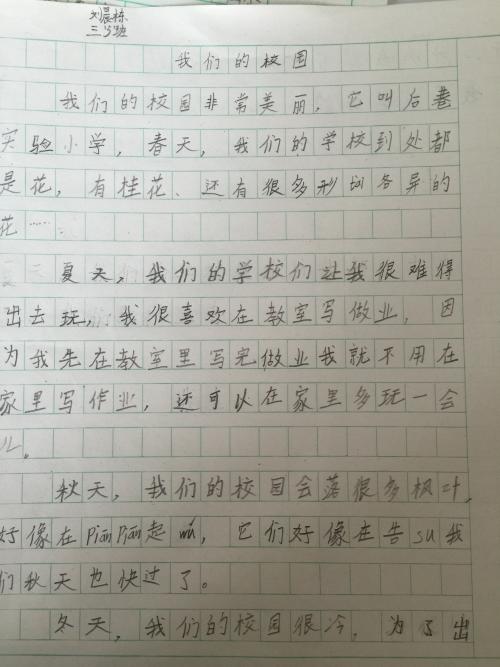 刘晨栋
三、3班
我们的校园
我们的校园非常美丽，它叫后巷
实验小学，春天，我们的学校到处都
是花，有桂花、还有很多形状各异的
花……
夏天，我们的学校们让我很难得
出去玩，我很喜欢在教室写做业，因
为我先在教室里写完做业我就不用在
家里写作业，还可以在家里多玩一会
儿。
秋天，我们的校园会落很多枫叶，
好像在piān piān起wǔ，它们好像在告su我
们秋天也快过了。
冬天，我们的校园很冷，为了出